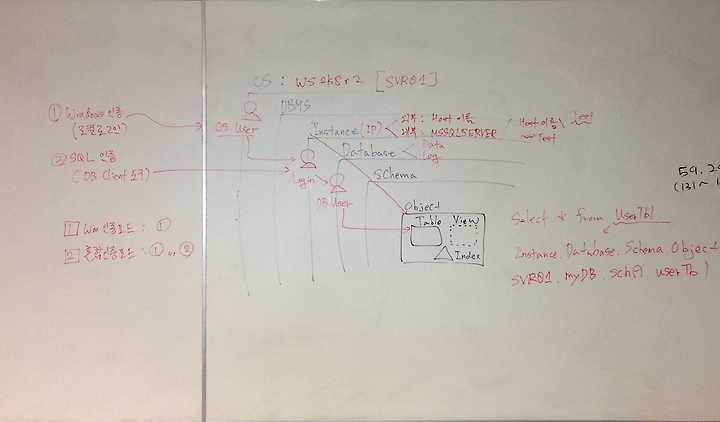 OS : WS2k8r2 [SVR01]
DBMS
① Windows 인증
(로컬로그인)
OS User
Instance (IP)
외부 : Host 이름
내부 : MSSQLSERVER
Host 이름\
Test
Test
② SQL 인증
(DB Client 도구)
Database
Data
Log
Login
Schema
DB User
Object
Table
View
Index
1 Win 인증모드 : ①
2 혼합인증모드 : ① or ②
Select * from UserTbl
Instance. Database. Schema. Object
SVR01. myDB. Sch1 userTbl
59.2
(131~